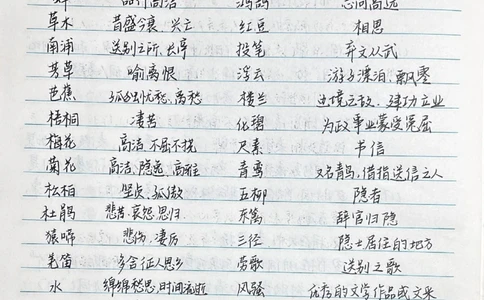 蝉 品行高洁 鸿鹄 志向高远
草木 昔盛今衰、兴亡 红豆 相思
南浦 送别之所、长亭 投笔 弃文从武
芳草 喻离恨 浮云 游子漂泊、飘零
芭蕉 孤独忧愁、离愁 楼兰 边境之敌、建功立业
梧桐 凄苦 化碧 为政事业蒙受冤屈
梅花 高洁、不屈不挠 尺素 书信
菊花 高洁、隐逸、高雅 青鸾 又名青鸟,借指送信之人
松柏 坚贞、孤傲 五柳 隐者
杜鹃 悲苦、哀怨、思归 东篱 辞官归隐
猿啼 悲伤、凄厉 三径 隐士居住的地方
羌笛 多含征人思乡 劳歌 送别之歌
水 绵绵愁思、时间流逝 风骚 优秀的文学作品或文采